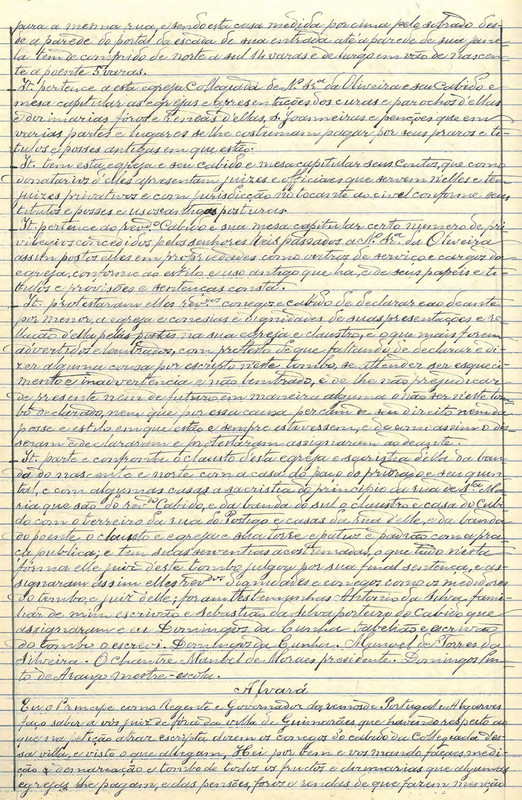 para a mesma rua, e sendo esta casa medida por cima pelo sobrado des-
de a parede do portal da escada de sua entrada até a parede de sua jane-
la tem de comprido de norte a sul 14 varas e de largo em vão de nascen-
te a poente 5 varas.
It. pertence a esta egreja Collegiada de N.ª Sr.ª da Oliveira e seu Cabido e
mesa capitular as egrejas e apresentações dos curas e parochos d'ellas
e dizimarias foros e rendas d'ellas, e Joanneiras e penções que em
varias partes e lugares se lhe costumam pagar por seus prazos e ti-
tulos e posses antigas em que estão.
It. tem esta egreja e seu cabido e mesa capitular seus coutos, que como
donatarios d'elles apresentam juizes e officiaes que servem n'elles e tem
juizes privativos e com jurisdicção no tocante ao civel conforme seus
titulos e posses e usos antigos posturas.
It. pertence ao rev.do Cabido e sua mesa capitular certo numero de pri-
vilegios concedidos pelos senhores Reis passados a N.ª Sr.ª da Oliveira
assim postos elles em propriedades como outros de serviço e cargos da
egreja, conforme ao estilo e uso antigo que ha, e de seus papeis e ti-
tulos e provisões e sentenças consta.
It. protestaram elles rev.dos conegos e cabido de declarar e ao deante
por menor, a egreja e conesias e dignidades de suas presentações e re-
lação d'ella pelas postas na sua egreja e claustro, e o que mais forem
advertidos e lembrados, com protesto de que faltando de declarar e di-
zer alguma cousa por escripto neste tombo, se attender ser esqueci-
mento e inadvertencia e não lembrado, e de lhe não prejudicar
de presente nem de futuro em maneira alguma o não ser neste tom-
bo declarado, nem que por essa causa percam de seu direito nem da
posse e estilo em que estão e sempre estivessem, e de como assim o dis-
seram e declararam e protestaram assignaram ao deante.
It. parte e confronta o claustro desta egreja e sacristia d'elle da ban-
da do nascente e norte com a casa do paço do priorado e seu quin-
tal, e com algumas casas a sacristia do principio da rua de S.ta Ma-
ria que são do rev.do Cabido, e da banda do sul o claustro e casa do Cabi-
do com o terreiro da rua do Postigo e casas da rua d'elle, e da banda
do poente o claustro e egreja e sua torre e pateo e padrão com a pra-
ça publica, e tem suas serventias acostumadas, o que tudo nesta
fórma elle juiz deste tombo julgou por sua final sentença, e as-
signaram assim elles rev.dos dignidades e conegos como os medidores
do tombo, e juiz d'elle; foram testemunhas Antonio da Silva, fami-
liar de mim escrivão e Sebastião da Silva porteiro do Cabido que
assignaram e eu Domingos da Cunha tabelião e escrivão
do tombo o escrevi. Domingos da Cunha. Manoel de Torres da
Silveira. O Chantre Manoel de Moraes presidente. Domingos Pin-
to de Araujo mestre-escola.
Alvará
Eu o Principe como Regente e Governador dos reinos de Portugal e Algarves
faço saber a vós juiz de fóra da villa de Guimarães que havendo respeito ao
que na petição atraz escripta dizem os Conegos do cabido da Collegiada des-
sa villa, e visto o que allegam, Hei por bem e vos mando façaes medi-
ção e demarcação e tombo de todos os fructos e dizimarias que algumas
egrejas lhe pagam, e das pensões, foros e rendas de que fazem menção